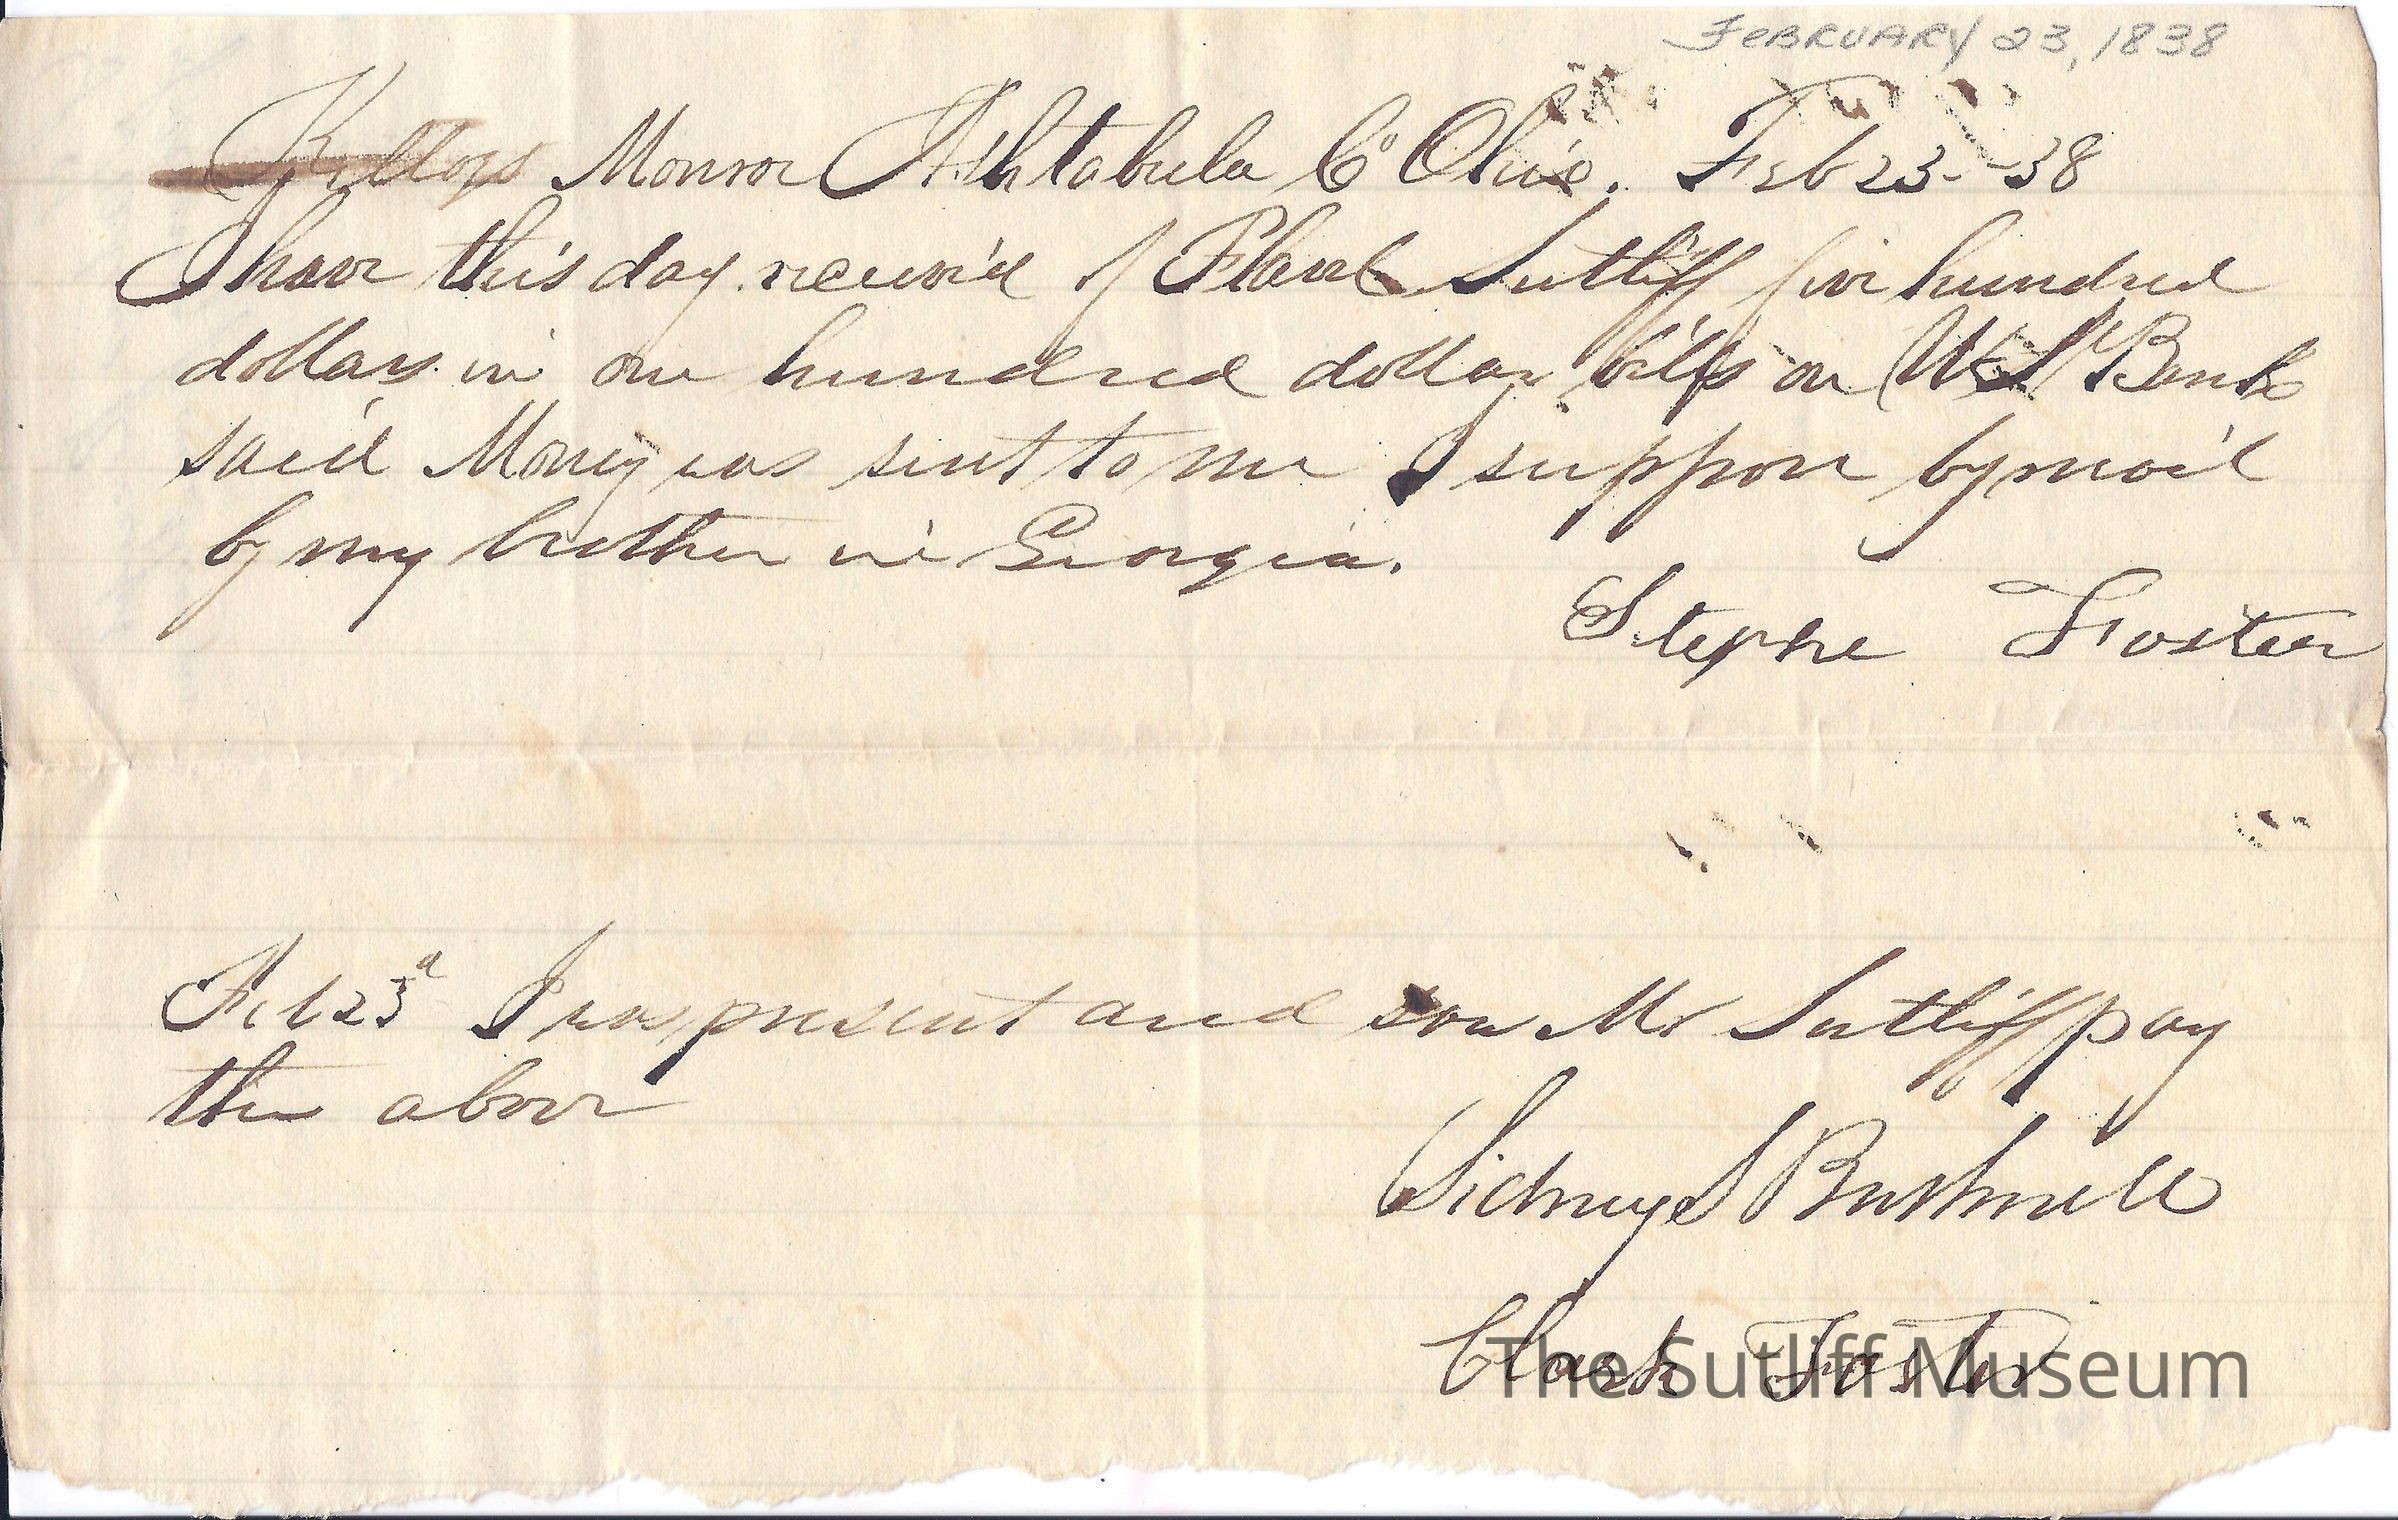 FEBRUARY 23, 1838
Monroe Ashtabula Co Ohio. Feb 23 - 38
I have this day receiv'd of Flavel Sutliff five hundred
dollars in one hundred dollar bills on U S Bank
said Money was sent to me I suppose by mail
by my brother in Georgia.
Stephe Foster
Feb 23d I was present and saw Mr Sutliff pay
the above
Sidney S Bushnell
Clark Foster
The Sutliff Museum